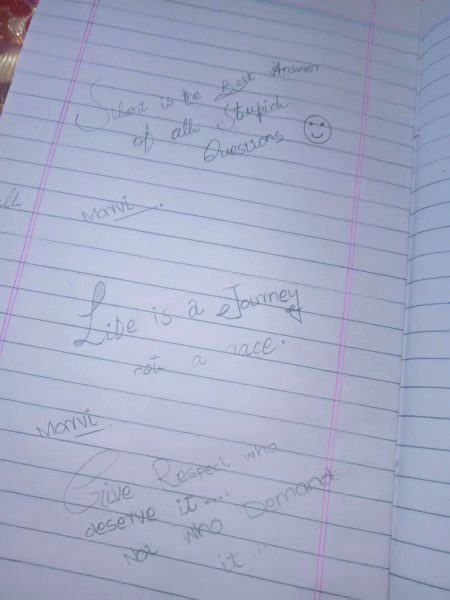 Silent is the Best Answer
of all Stupid
Questions
Marvi
Life is a Journey
not a race.
Marvi.
Give Respect who
deserve it....
Not who Demand
it...